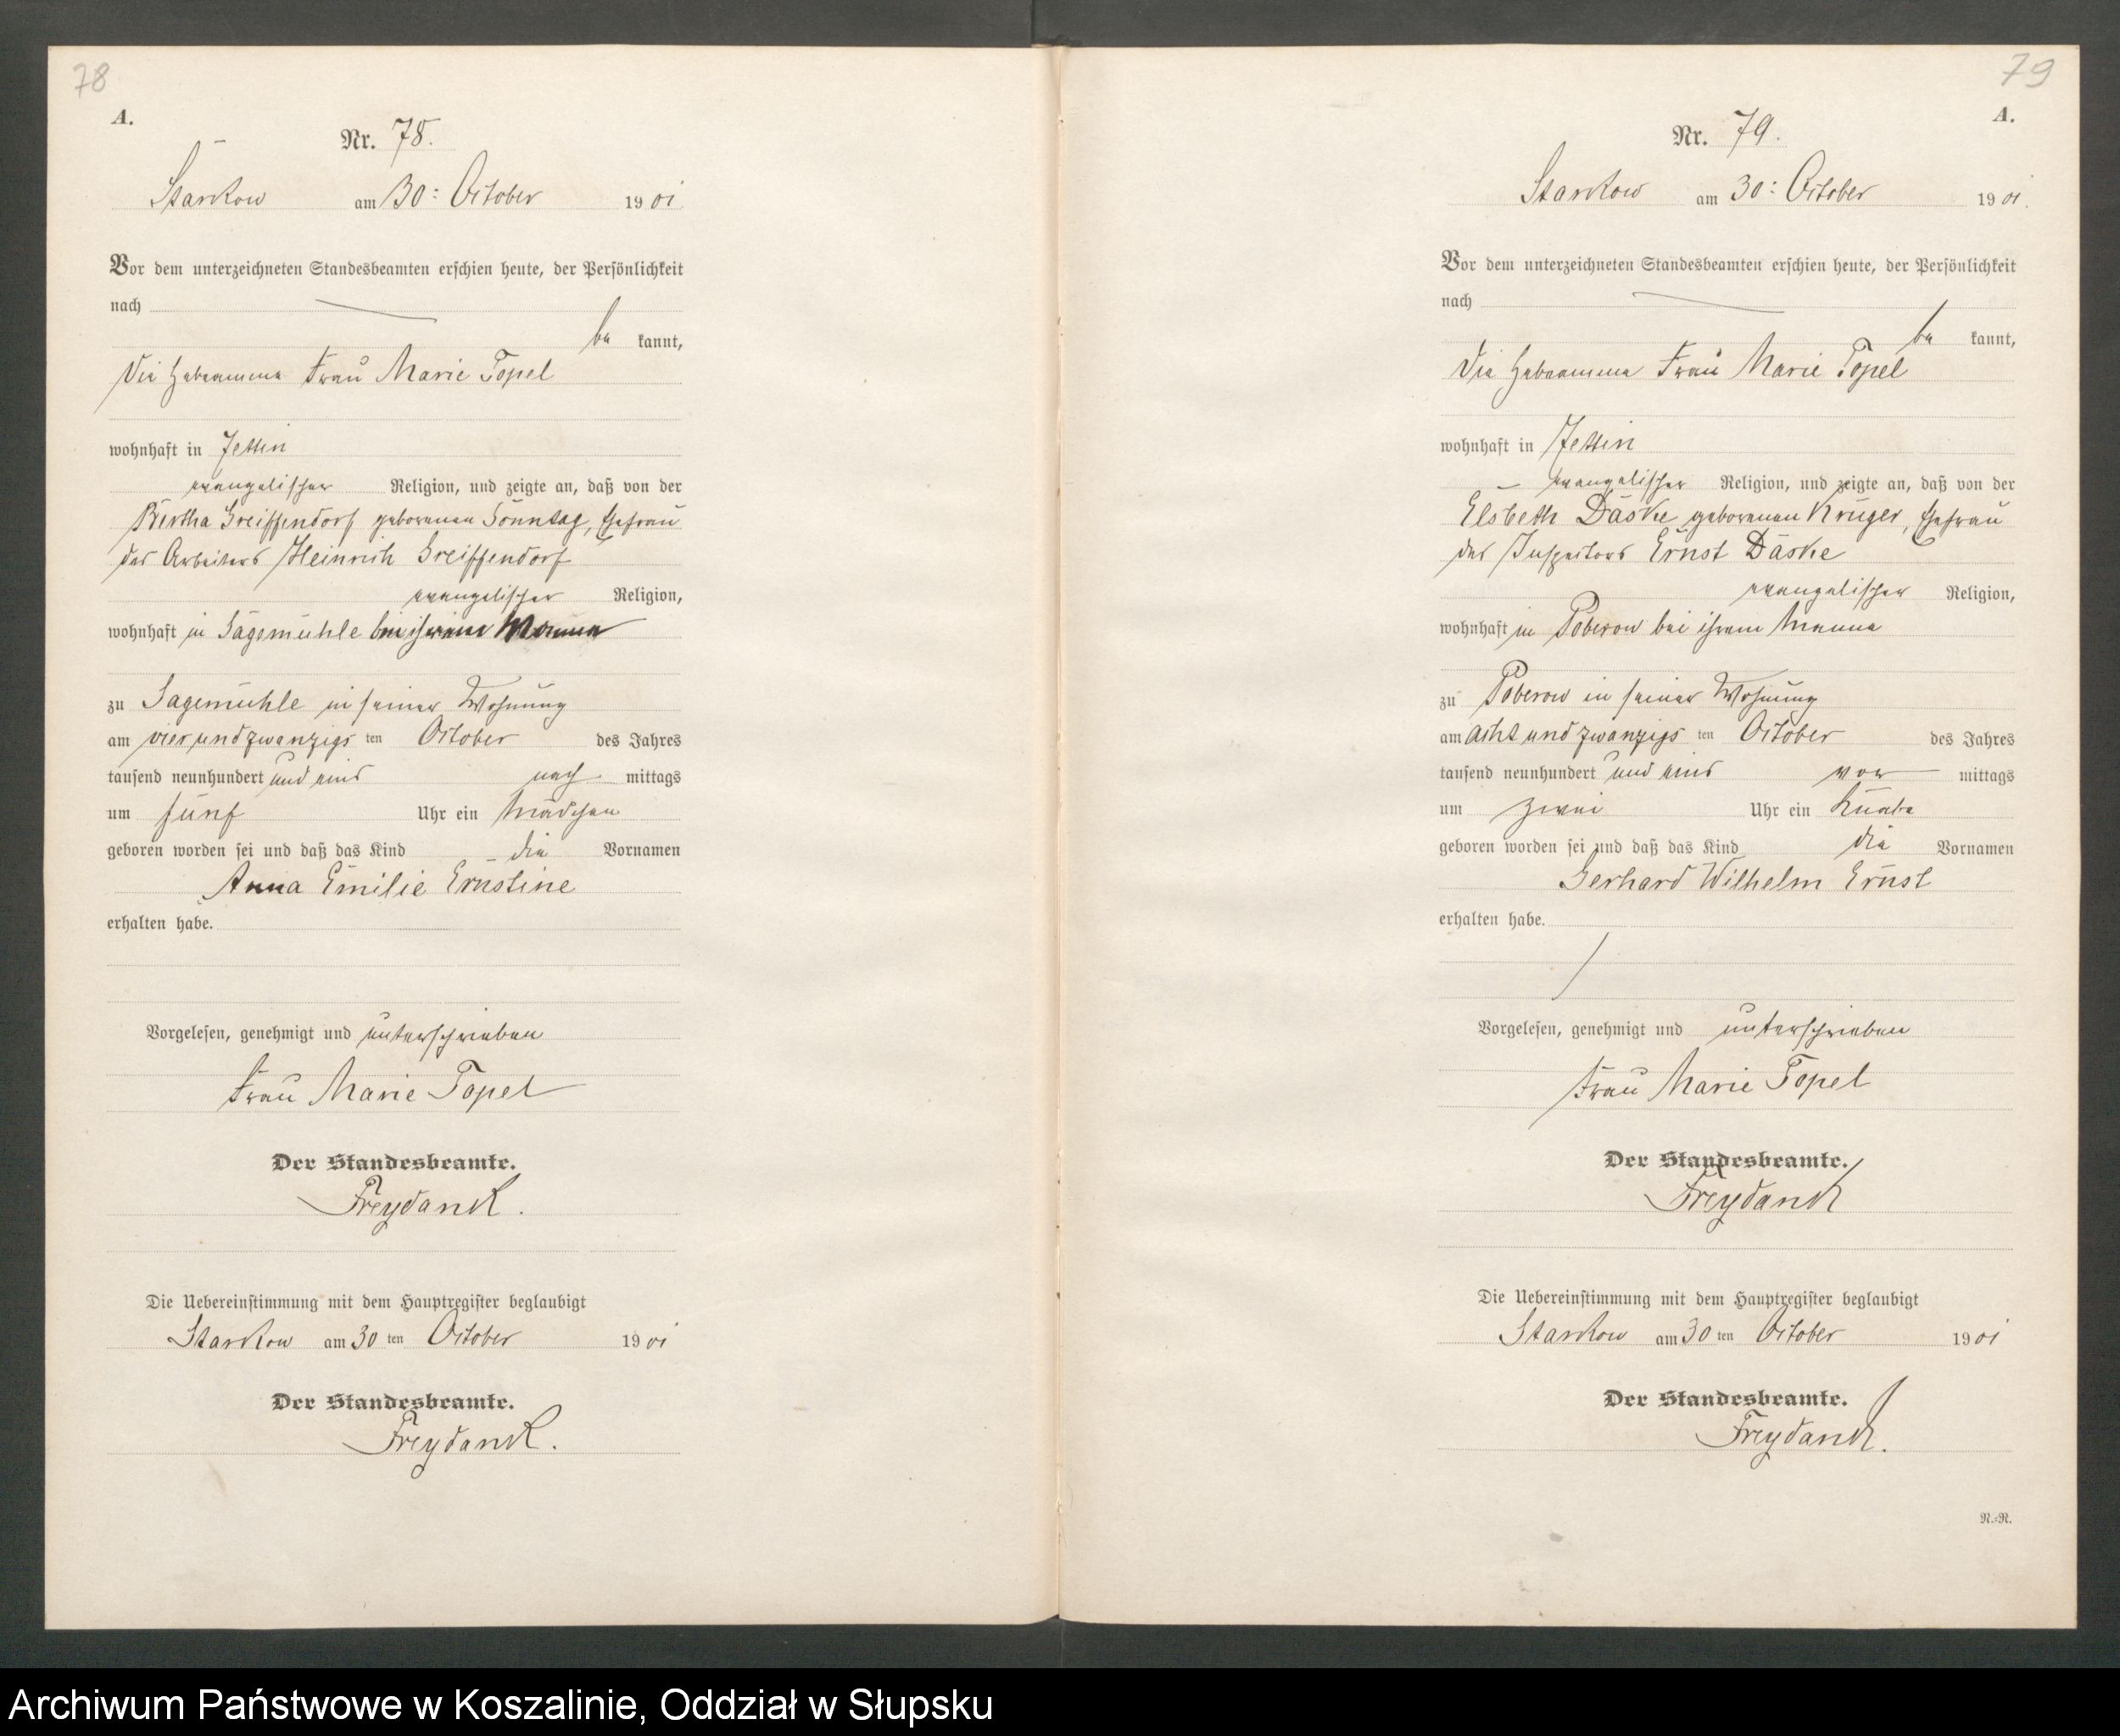 78
A.
Nr. 78.
Starkow am 30: October 1901
Vor dem unterzeichneten Standesbeamten erschien heute, der Persönlichkeit
nach
be kannt,
die Hebeamme Frau Marie Topel
wohnhaft in Jettin
evangelischer Religion, und zeigte an, daß von der
Bertha Greiffendorf geborenen Sonntag, Ehefrau
des Arbeiters Heinrich Greiffendorf
evangelischer Religion,
wohnhaft in Sägemühle bei ihrem Manne
zu Sägemühle in seiner Wohnung
am vier und zwanzigs ten October des Jahres
tausend neunhundert und eins nach mittags
um fünf Uhr ein Mädchen
geboren worden sei und daß das Kind die Vornamen
Anna Emilie Ernstine
erhalten habe.
Vorgelesen, genehmigt und unterschrieben
Frau Marie Topel
Der Standesbeamte.
Freydanck.
Die Uebereinstimmung mit dem Hauptregister beglaubigt
Starkow am 30 ten October 1901
Der Standesbeamte.
Freydanck.
79
A.
Nr. 79.
Starkow am 30: October 1901.
Vor dem unterzeichneten Standesbeamten erschien heute, der Persönlichkeit
nach
be kannt,
die Hebeamme Frau Marie Topel
wohnhaft in Jettin
evangelischer Religion, und zeigte an, daß von der
Elsbeth Däske geborenen Krüger, Ehefrau
des Inspectors Ernst Däske
evangelischer Religion,
wohnhaft in Poberow bei ihrem Manne
zu Poberow in seiner Wohnung
am acht und zwanzigs ten October des Jahres
tausend neunhundert und eins vor mittags
um zwei Uhr ein Knabe
geboren worden sei und daß das Kind die Vornamen
Gerhard Wilhelm Ernst
erhalten habe.
Vorgelesen, genehmigt und unterschrieben
Frau Marie Topel
Der Standesbeamte.
Freydanck
Die Uebereinstimmung mit dem Hauptregister beglaubigt
Starkow am 30 ten October 1901
Der Standesbeamte.
Freydanck.
N.-R.
Archiwum Państwowe w Koszalinie, Oddział w Słupsku